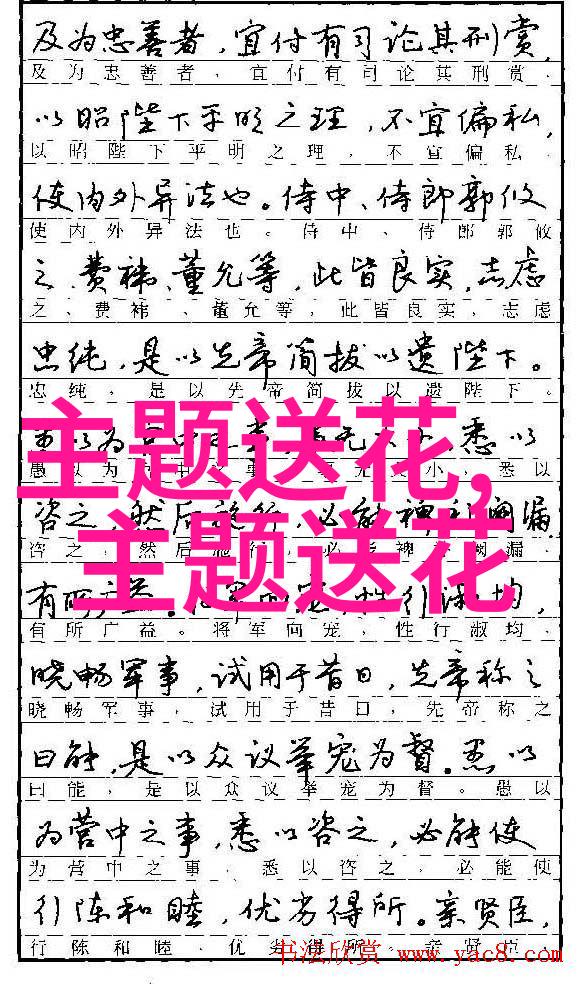 及为忠善者，宜付有司论其刑赏，
及为忠善者，宜付有司论其刑赏，
以昭陛下平明之理，不宜偏私，
以昭陛下平明之理，不宜偏私，
使内外异法也。侍中、侍郎郭攸
使内外异法也。侍中、侍郎郭攸
之、费祎、董允等，此皆良实，志虑
之、费祎、董允等，此皆良实，志虑
忠纯，是以先帝简拔以遗陛下。
忠纯，是以先帝简拔以遗陛下。
主题送花,
以为 中 事， 无 悉以
愚以为 中之事 无 小，悉以
咨之，然后施行，必能裨 阙漏
咨之，然后施行，必 裨 阙漏，
主题送花
有所广益。 宠，性行淑均，
有所广益。将军向宠，性行淑均，
晓畅军事，试用于昔日，先帝称之
晓畅军事，试用于昔日，先帝称之
曰能，是以众议举宠为督。愚以
曰能，是以众议举宠为督。愚以
为营中之事，悉以咨之，必能使
为营中之事，悉以咨之，必能使
行陈和睦，优劣得所。亲贤臣，
行陈和睦，优劣得所。亲贤臣，
书法欣赏 www.yac8.com